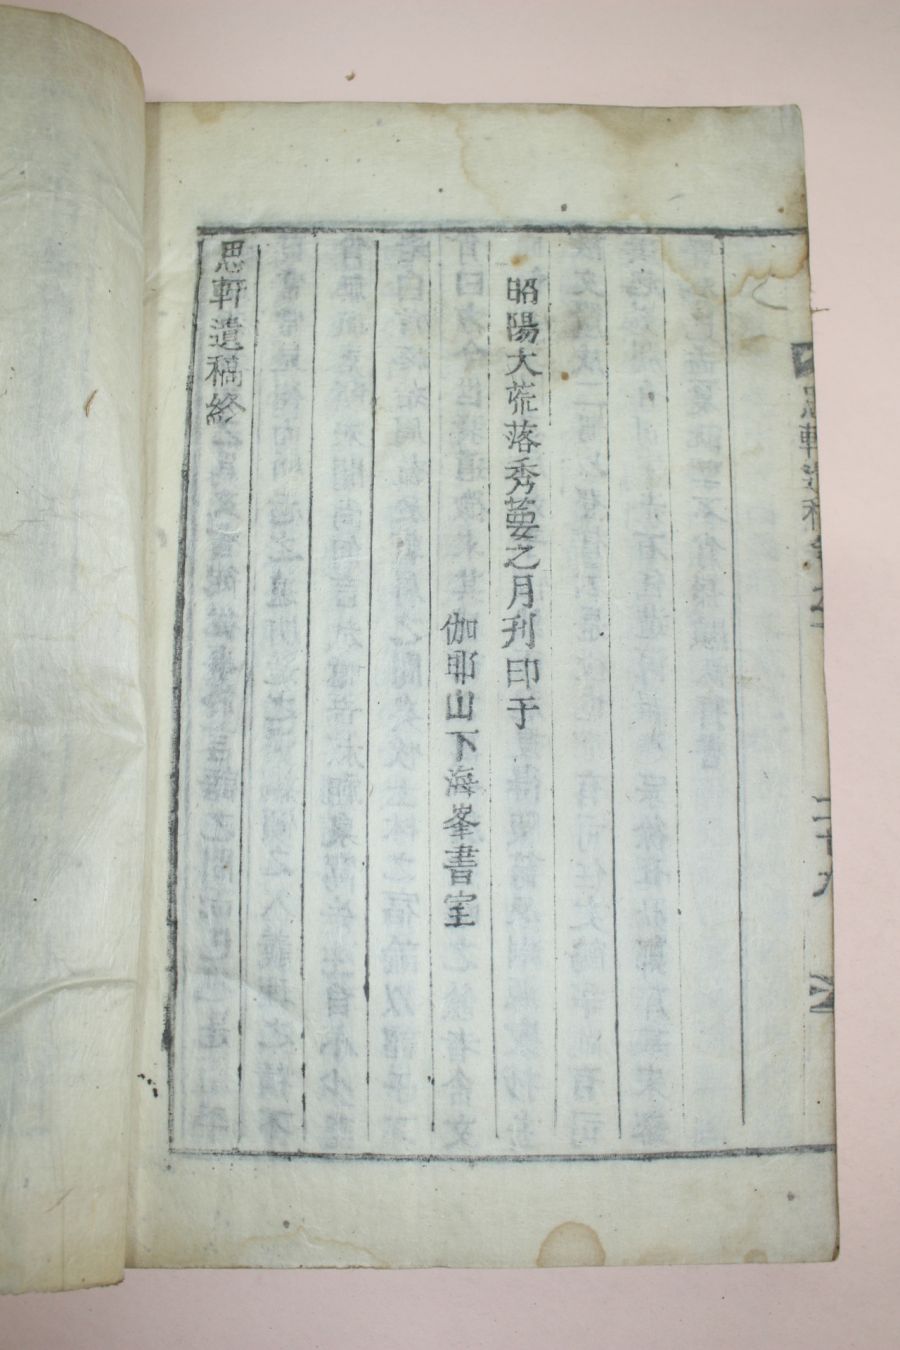 昭陽大荒落秀葽之月刋印于
伽耶山下海峯書室
思軒遺稿終
思軒遺稿卷之
二十九